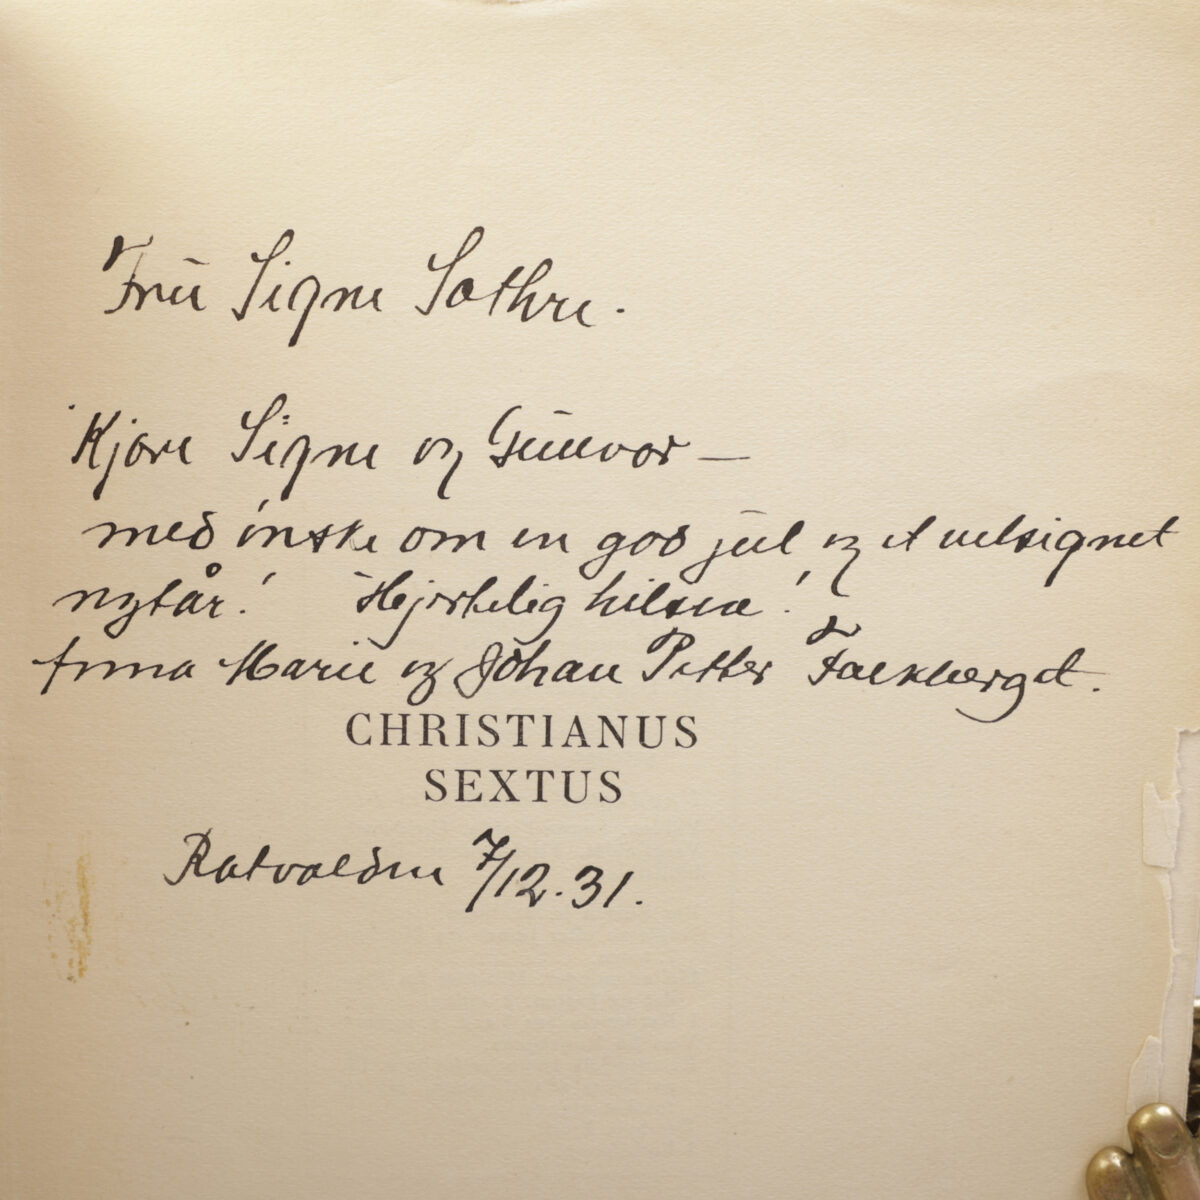 Frū Signe Sæthre.
Kjære Signe og Gūnvor —
med ønske om en god jūl og et velsignet
nytår! Hjertelig hilsen!
Anna Marie og Johan Petter Falkberget.
CHRISTIANUS
SEXTUS
Ratvolden 7/12.31.